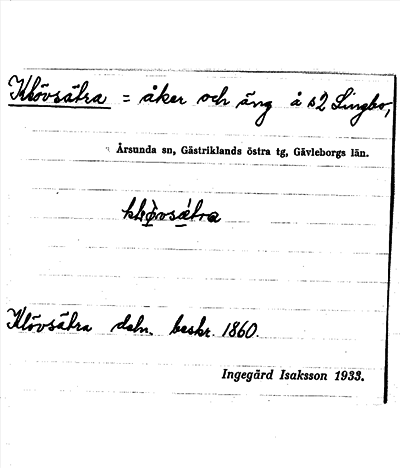 Klövsätra = åker och äng å s2 Lingbo,
Årsunda sn, Gästriklands östra tg, Gävleborgs län.
Klövsätra deln. beskr. 1860.
Ingegärd Isaksson 1933.